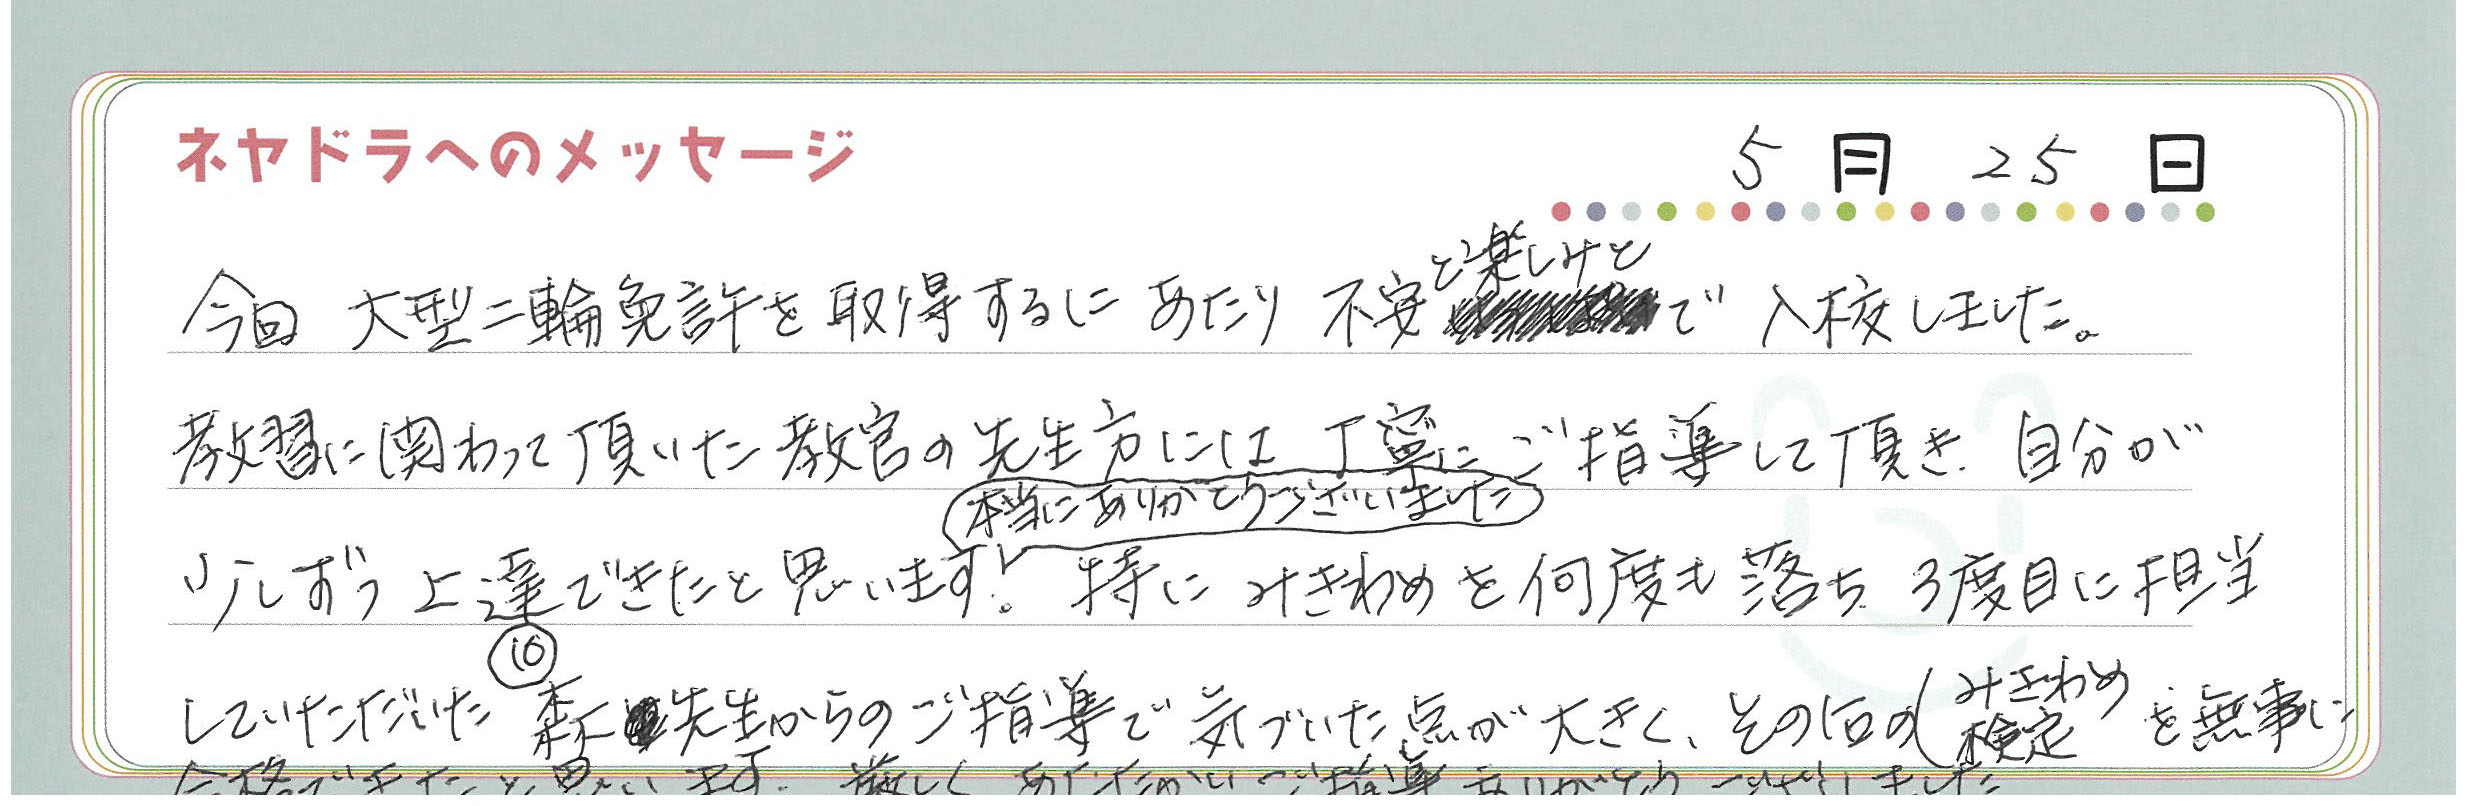 ネヤドラへのメッセージ
5月25日
と楽しみと
今回 大型二輪免許を取得するに あたり 不安 で 入校しました。
教習に関わって頂いた教官の先生方には 丁寧にご指導して頂き、自分が
本当にありがとうございました
少しずつ上達できたと思います! 特に みきわめを何度も落ち 3度目に担当
⑯
していただいた 森 先生からのご指導で気づいた点が大きく、その后の(みきわめ
検定 を無事に
合格できたと思います。厳しく あたたかいご指導ありがとうございました